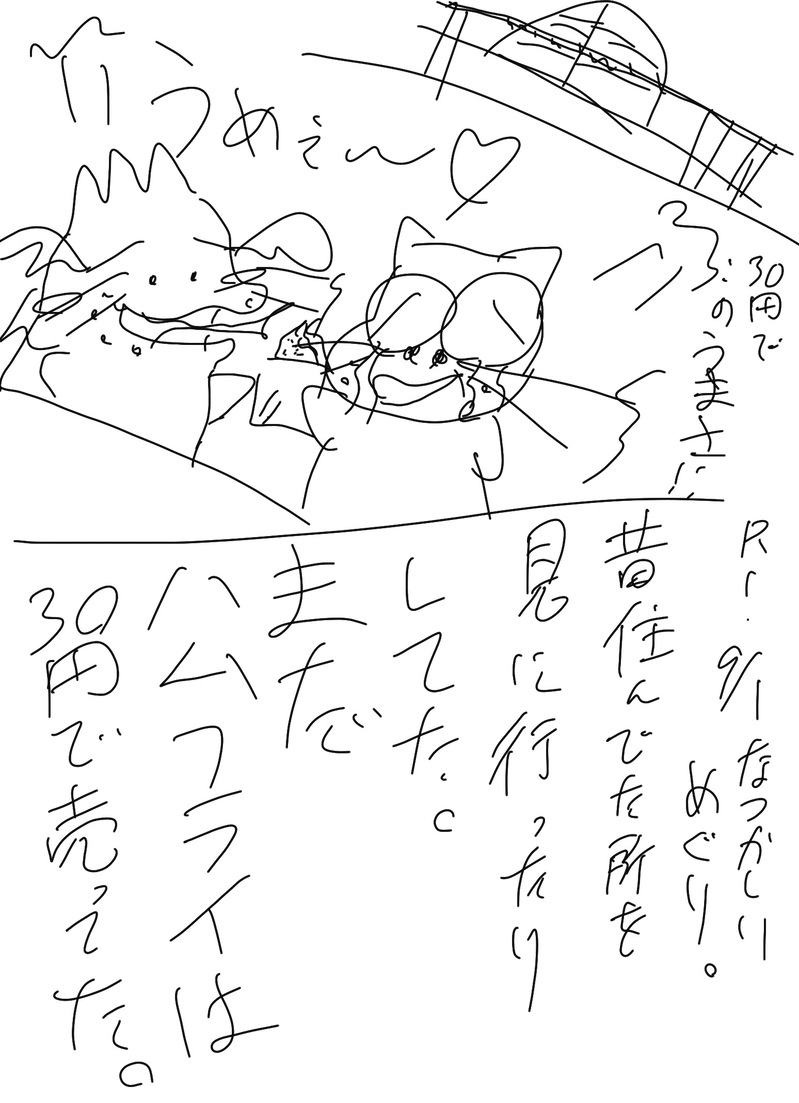 うめぇ〜♡
30円で
このうまさ!!
R1.9/1 なつかしい
めぐり。
昔住んでた所を
見に行ったり
してた。
まだ
ハムフライは
30円で売ってた。